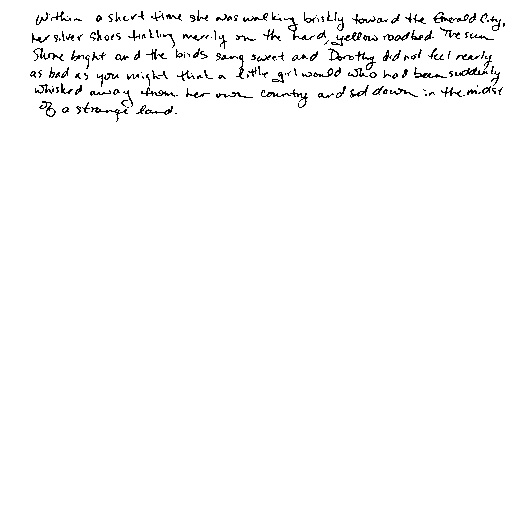 Within a short time she was walking briskly toward the Emerald City,
her silver shoes tinkling merrily on the hard, yellow roadbed. The sun
shone bright and the birds sang sweet and Dorothy did not feel nearly
as bad as you might think a little girl would who had been suddenly
whisked away from her own country and set down in the midst
of a strange land.